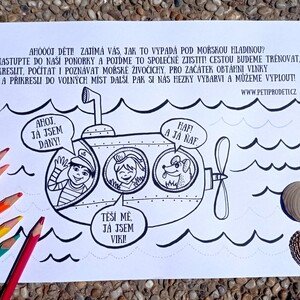 AHÓÓÓJ DĚTI! ZAJÍMÁ VÁS, JAK TO VYPADÁ POD MOŘSKOU HLADINOU?
NASTUPTE DO NAŠÍ PONORKY A POJĎME TO SPOLEČNĚ ZJISTIT! CESTOU BUDEME TRÉNOVAT,
KRESLIT, POČÍTAT I POZNÁVAT MOŘSKÉ ŽIVOČICHY. PRO ZAČÁTEK OBTÁHNI VLNKY
A PŘIKRESLI DO VOLNÝCH MÍST DALŠÍ PAK SI NÁS HEZKY VYBARVI A MŮŽEME VYPLOUT!
WWW.PETIPRODETI.CZ
AHOJ,
JÁ JSEM
DANY!
HAF!
A JÁ HAF
TĚŠÍ MĚ,
JÁ JSEM
VIKI!